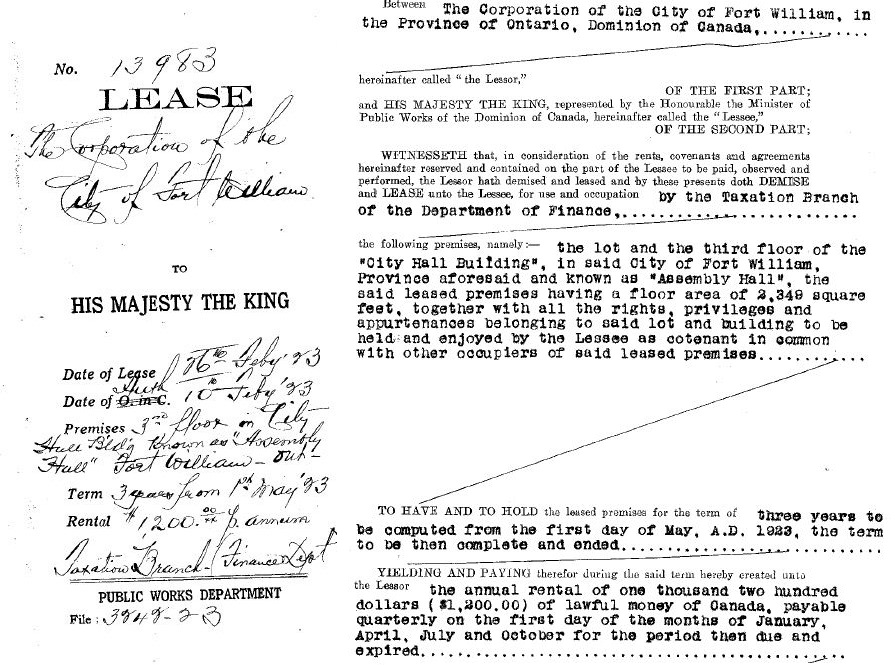 No. 13983
LEASE
The Corporation of the
City of Fort William
TO
HIS MAJESTY THE KING
Date of Lease 26th Feby '23
Date of O. in C. Auth 10th Feby '23
Premises 3rd floor in City
Hall Bldg Known as "Assembly
Hall" Fort William - Ont -
Term 3 years from 1st May '23
Rental $1200.00/xx p. annum
Taxation Branch - Finance Dept
PUBLIC WORKS DEPARTMENT
File: 3848-23
Between The Corporation of the City of Fort William, in
the Province of Ontario, Dominion of Canada,
hereinafter called "the Lessor,"
OF THE FIRST PART;
and HIS MAJESTY THE KING, represented by the Honourable the Minister of
Public Works of the Dominion of Canada, hereinafter called the "Lessee,"
OF THE SECOND PART;
WITNESSETH that, in consideration of the rents, covenants and agreements
hereinafter reserved and contained on the part of the Lessee to be paid, observed and
performed, the Lessor hath demised and leased and by these presents doth DEMISE
and LEASE unto the Lessee, for use and occupation by the Taxation Branch
of the Department of Finance,
the following premises, namely:— the lot and the third floor of the
"City Hall Building", in said City of Fort William,
Province aforesaid and known as "Assembly Hall", the
said leased premises having a floor area of 2,349 square
feet, together with all the rights, privileges and
appurtenances belonging to said lot and building to be
held and enjoyed by the Lessee as cotenant in common
with other occupiers of said leased premises
TO HAVE AND TO HOLD the leased premises for the term of three years to
be computed from the first day of May, A.D. 1923, the term
to be then complete and ended
YIELDING AND PAYING therefor during the said term hereby created unto
the Lessor the annual rental of one thousand two hundred
dollars ($1,200.00) of lawful money of Canada, payable
quarterly on the first day of the months of January,
April, July and October for the period then due and
expired